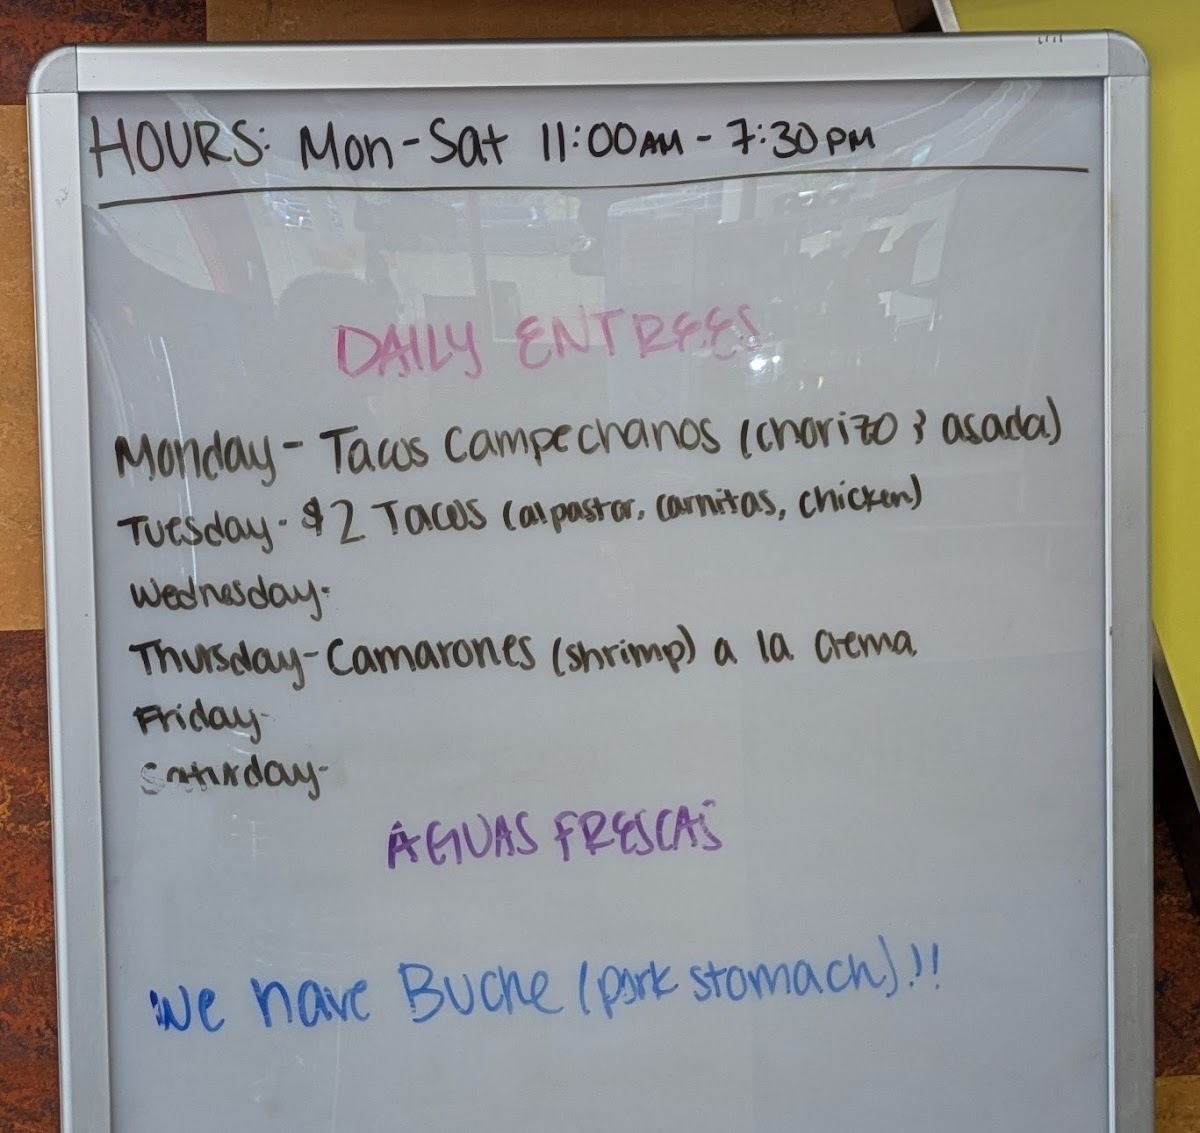 HOURS: Mon-Sat 11:00AM - 7:30PM
DAILY ENTREES
Monday - Tacos Campechanos (chorizo & asada)
Tuesday - $2 Tacos (al pastor, carnitas, chicken)
Wednesday-
Thursday - Camarones (shrimp) a la crema
Friday-
Saturday-
AGUAS FRESCAS
We have Buche (pork stomach)!!